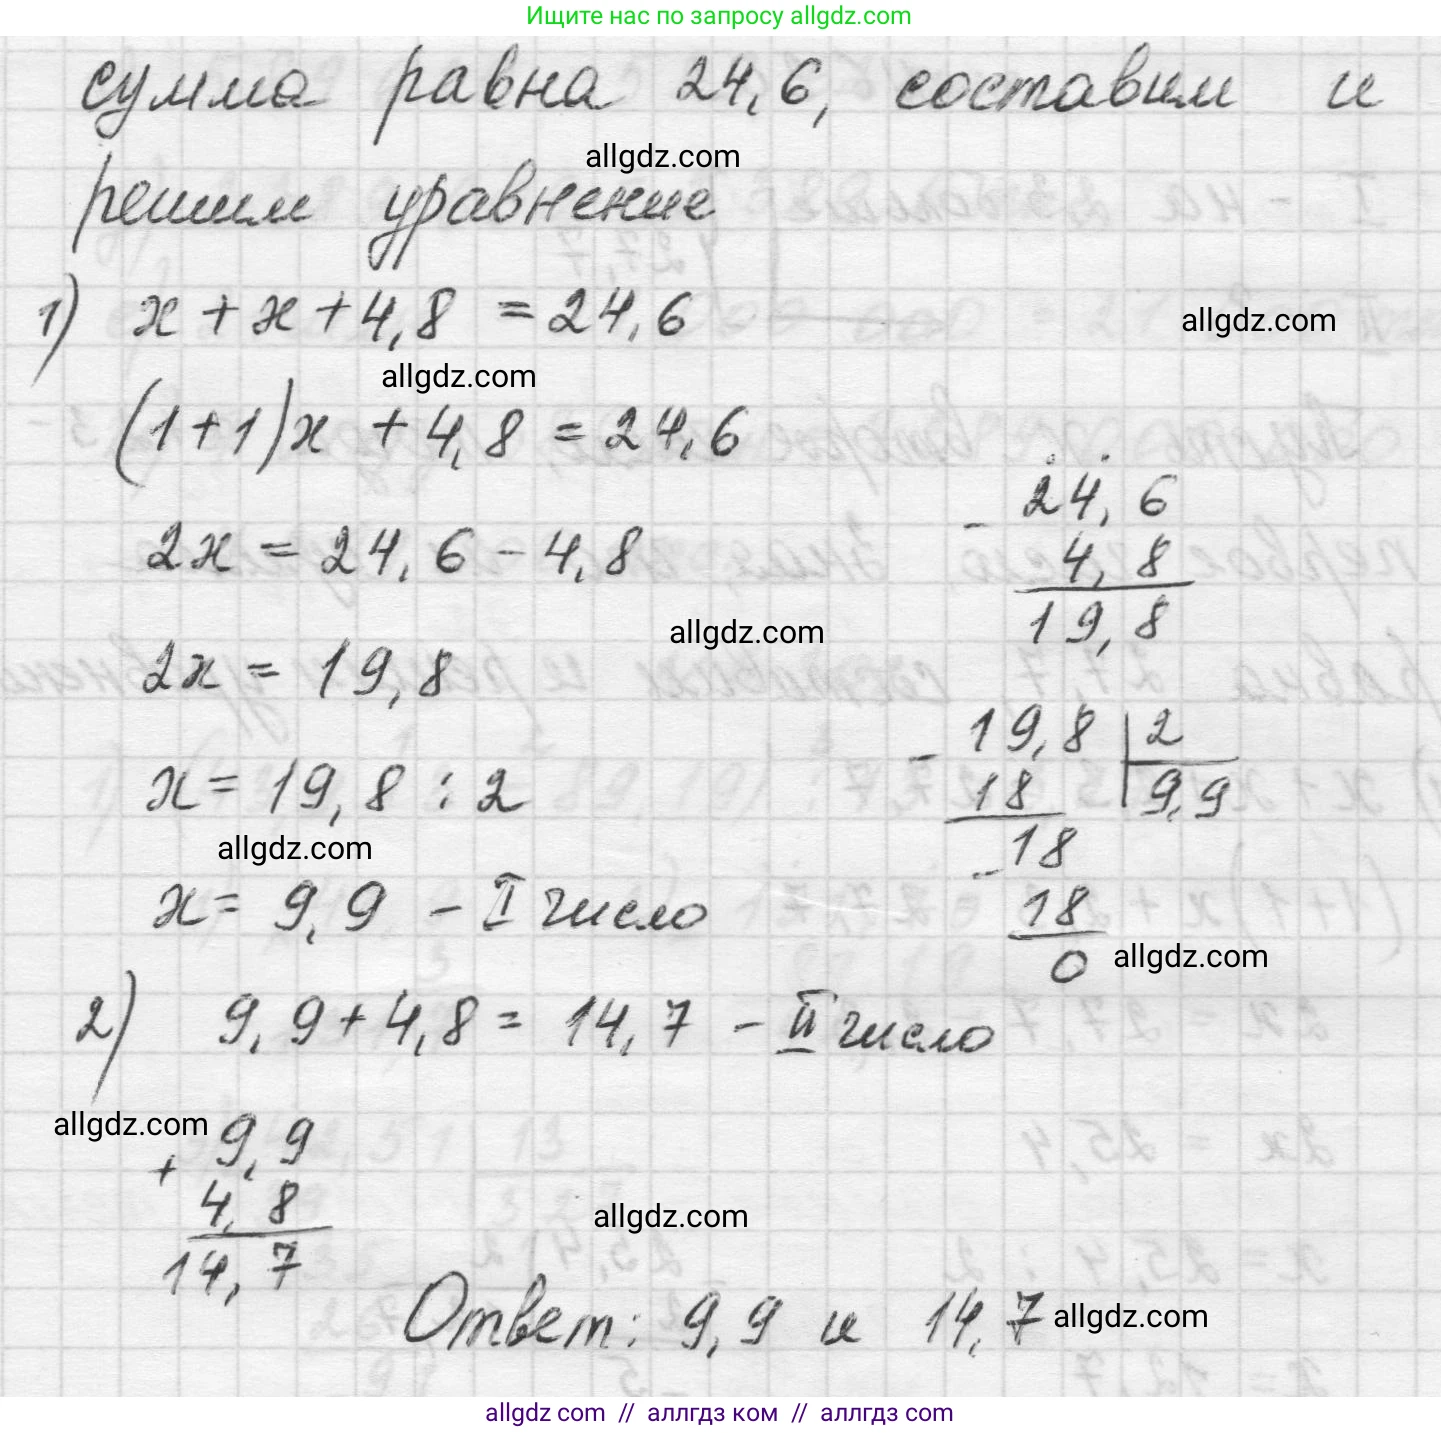 Ищите нас по запросу allgdz.com
сумма равна 24,6, составим и
allgdz.com
решим уравнение
1) x + x + 4,8 = 24,6
allgdz.com
allgdz.com
(1+1)x + 4,8 = 24,6
2x = 24,6 - 4,8
24,6
- 4,8
19,8
allgdz.com
2x = 19,8
x = 19,8 : 2
- 19,8 | 2
18 9,9
- 18
18
0
allgdz.com
x = 9,9 - I число
allgdz.com
2) 9,9 + 4,8 = 14,7 - II число
allgdz.com
9,9
+ 4,8
14,7
allgdz.com
Ответ: 9,9 и 14,7
allgdz.com
allgdz com // аллгдз ком // аллгдз com